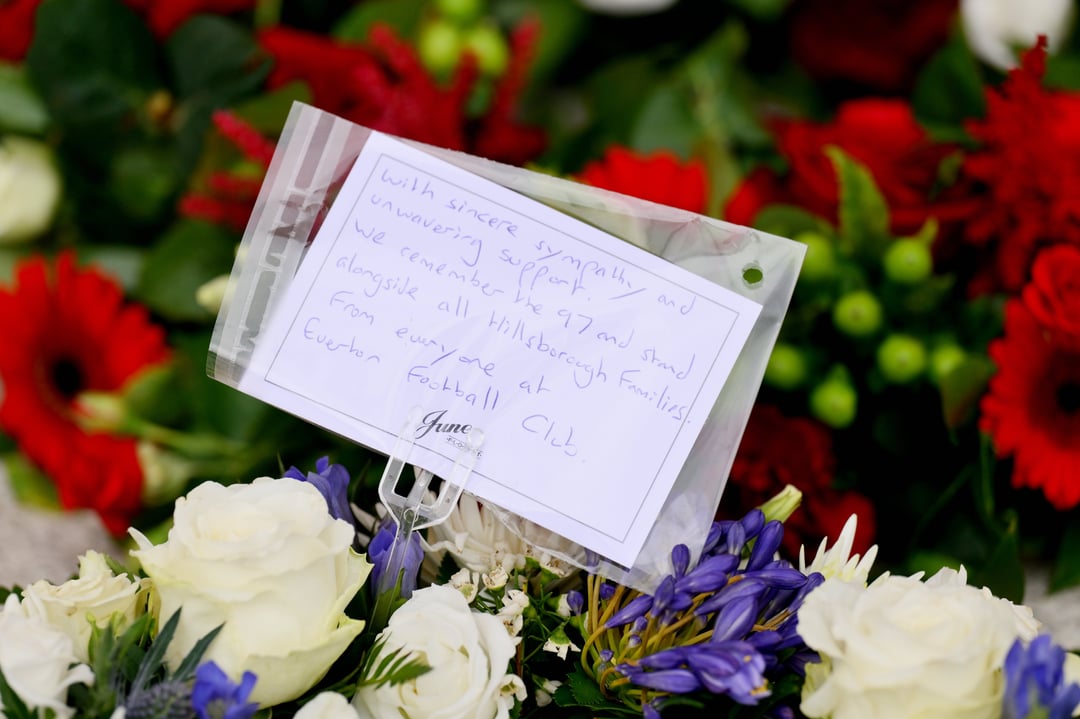 With sincere sympathy and
unwavering support.
We remember the 97 and stand
alongside all Hillsborough Families.
From everyone at
Everton Football Club.
June